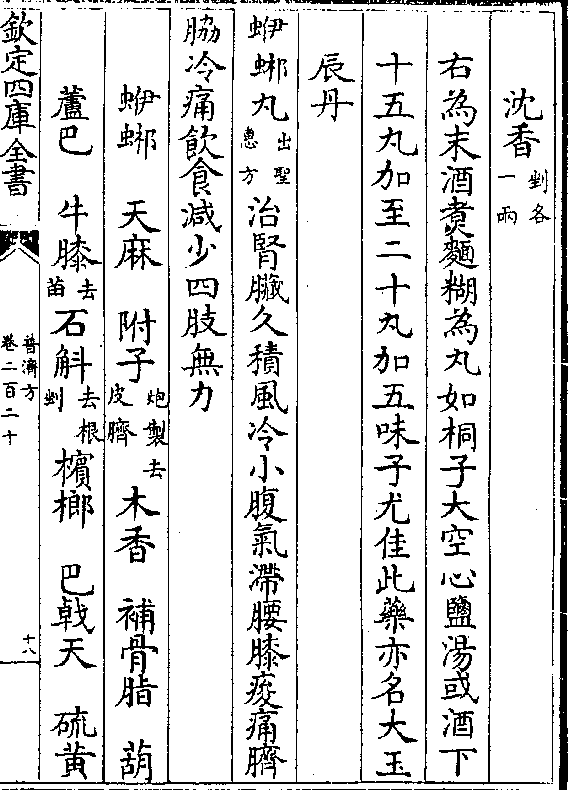 沈香剉各一兩
右為末酒煑麵糊為丸如桐子大空心鹽湯或酒下
十五丸加至二十丸加五味子尤佳此藥亦名大玉
辰丹
蛜𧌴丸出聖惠方治腎臟久積風冷小腹氣滯腰膝痠痛臍
脇冷痛飲食減少四肢無力
蛜𧌴 天麻 附子炮製去皮臍 木香 補骨脂 葫
蘆巴 牛膝去苗 石斛去根剉 檳榔 巴戟天 硫黄
欽定四庫全書
普濟方
卷二百二十
十八